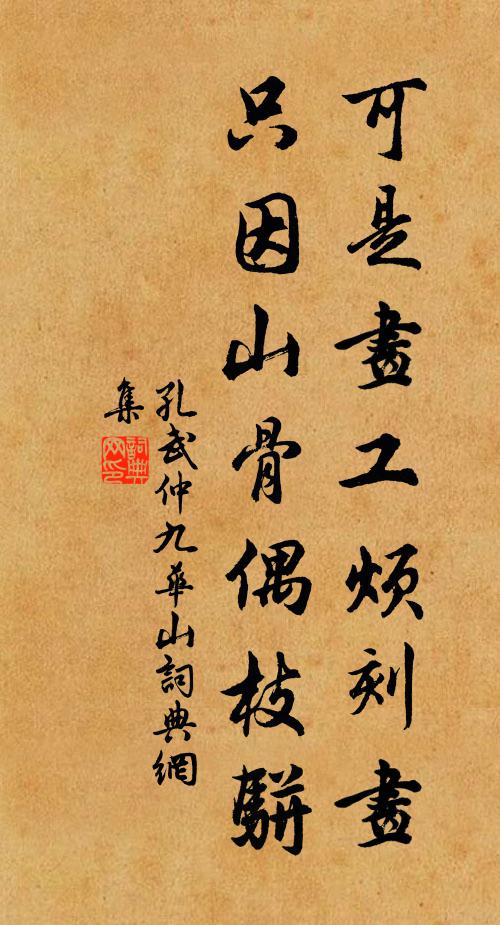 可是畫工煩刻畫
只因山骨偶枝駢
孔武仲九華山詞典網
集
詞典網印